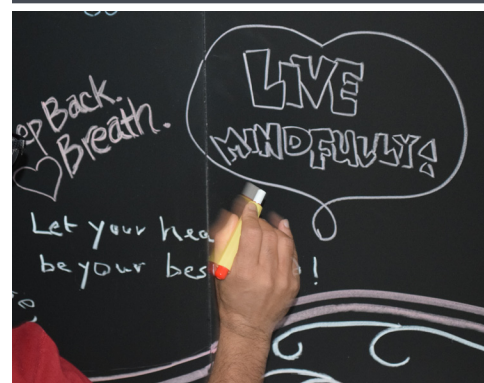 Back.
Breath.
LIVE
MINDFULLY!
Let your
be your
!